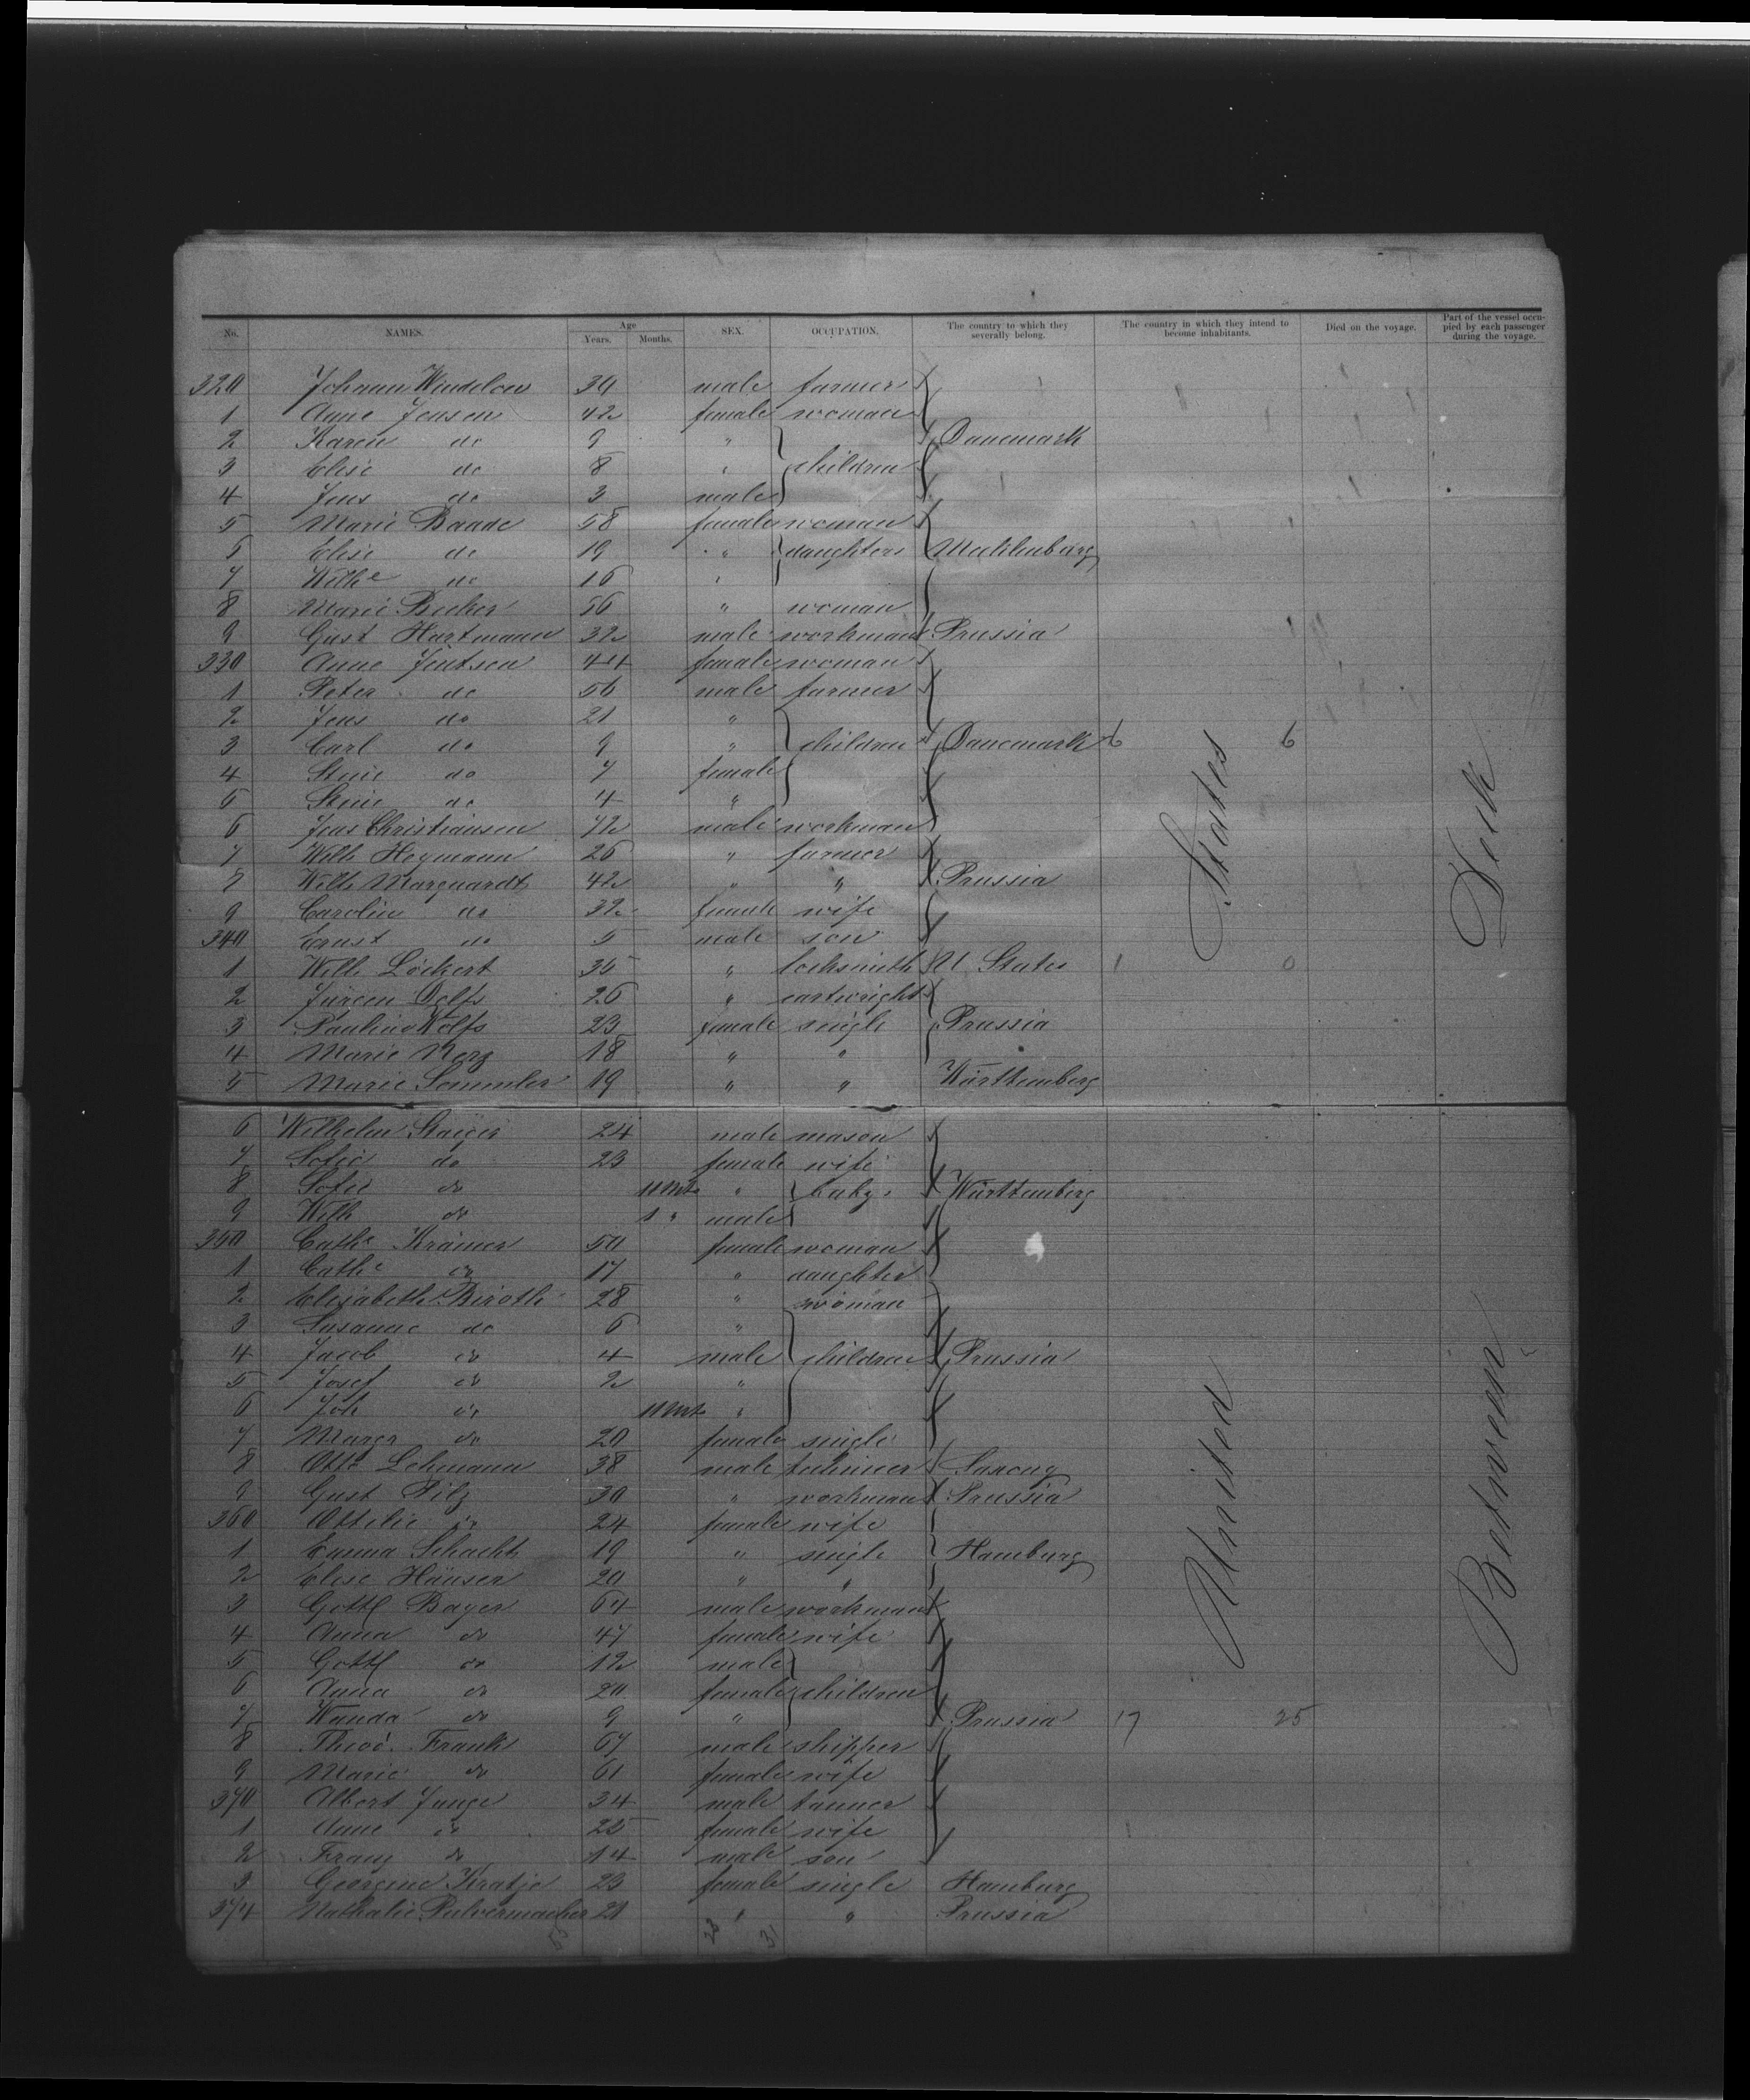 No. NAMES. Age Years. Months. SEX. OCCUPATION. The country to which they severally belong. The country in which they intend to become inhabitants. Died on the voyage. Part of the vessel occupied by each passenger during the voyage.
320 Johann 34 male farmer
1 Anne Jensen 42 female woman
2 Karen do 9 " Danemark
3 Elise do 8 " children
4 Jens do 3 male
5 Marie Baade 58 female woman
6 Elise do 19 " daughters Mecklenburg
7 Wilhe do 16 "
8 Marie Becker 56 " woman
9 Gust Hartmann 32 male workman Prussia
330 Anne Jentsen 44 female woman
1 Peter do 56 male farmer
2 Jens do 21 "
3 Carl do 9 " children Danemark 6 6
4 Stine do 7 female
5 Stine do 4 "
6 Jens Christiansen 42 male workman
7 Wilh Hegmann 26 " farmer
8 Wilh Marquardt 42 " " Prussia
9 Carolin do 32 female wife
340 Ernst do 5 male son
1 Wilh Löckert 35 " locksmith U States 1 0
2 Jürgen 26 " cartwright
3 Pauline Wolfs 23 female single Prussia
4 Marie 18 " "
5 Marie Semmler 19 " " Württemberg
6 Wilhelm Staiger 24 male mason
7 Sofie do 23 female wife
8 Sofie do 11 Mts " babys Württemberg
9 Wilh do 1 " male
350 Cathe Krämer 50 female woman
1 Cathe do 17 " daughter
2 Elisabeth Biroth 28 " woman
3 Susanne do 6 "
4 Jacob do 4 male children Prussia
5 Josef do 2 "
6 Joh do 11 Mts "
7 Margr do 20 female single
8 Otto Lehmann 38 male Saxony
9 Gust Pilz 30 " workman Prussia
360 Ottilie do 24 female wife
1 Emma Schacht 19 " single Hamburg
2 Elise Häuser 20 " "
3 Gottl Bayer 64 male workman
4 Anna do 47 female wife
5 Gottl do 12 male
6 Anna do 20 female children
7 Wanda do 9 " Prussia 17 25
8 Theod. Frank 67 male skipper
9 Marie do 61 female wife
370 Albert Junge 34 male tanner
1 Anne do 25 female wife
2 Franz do 14 male son
3 Georgine Kratje 23 female single Hamburg
374 Nathalie Pulvermacher 21 " " Prussia
53 31
United States
Between Deck